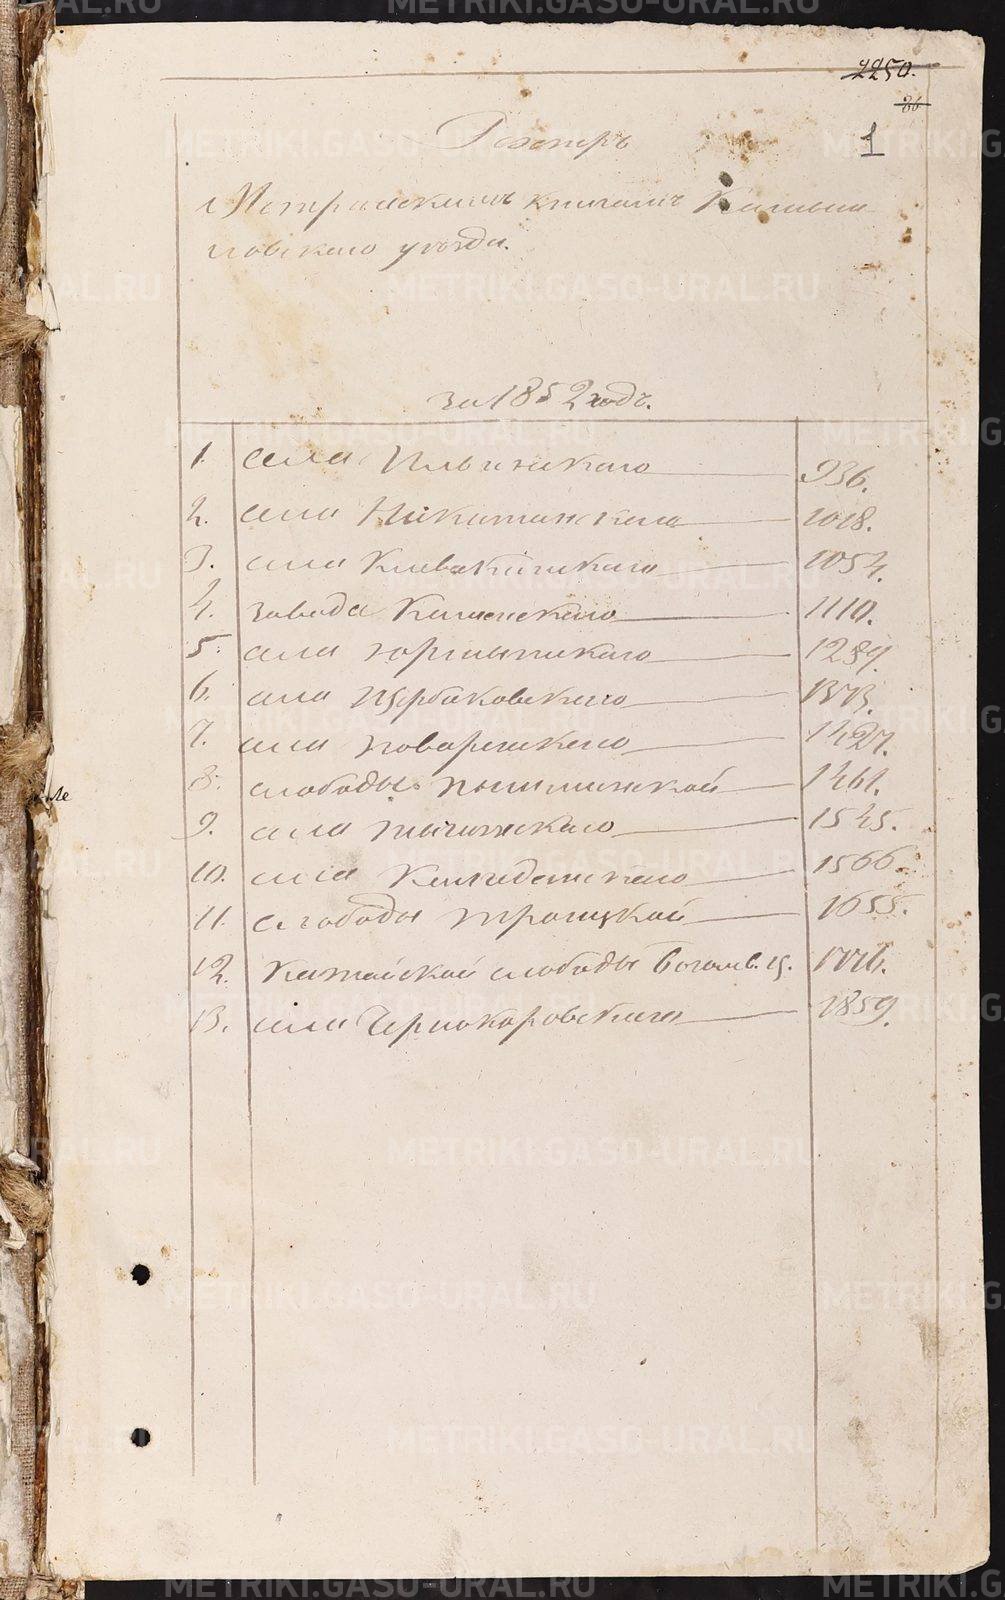 2250.
86
1
Реэстръ
Метрическимъ книгамъ Камыш
ловскаго уѣзда.
за 1852 годъ.
1. села Ильинскаго 936.
2. села Никитинскаго 1018.
3. села Клевакинскаго 1054.
4. завода Каменскаго 1110.
5. села Юрмытскаго 1289.
6. села Щербаковскаго 1373.
7. села Поваренскаго 1427.
8. слободы Пышминской 1461.
9. села Тыгинскаго 1545.
10. села Колчеданскаго 1566.
11. слободы Троицкой 1655.
12. Катайской слободы Богоявл. ц. 1776.
13. села Чернокоровскаго 1859.
METRIKI.GASO-URAL.RU